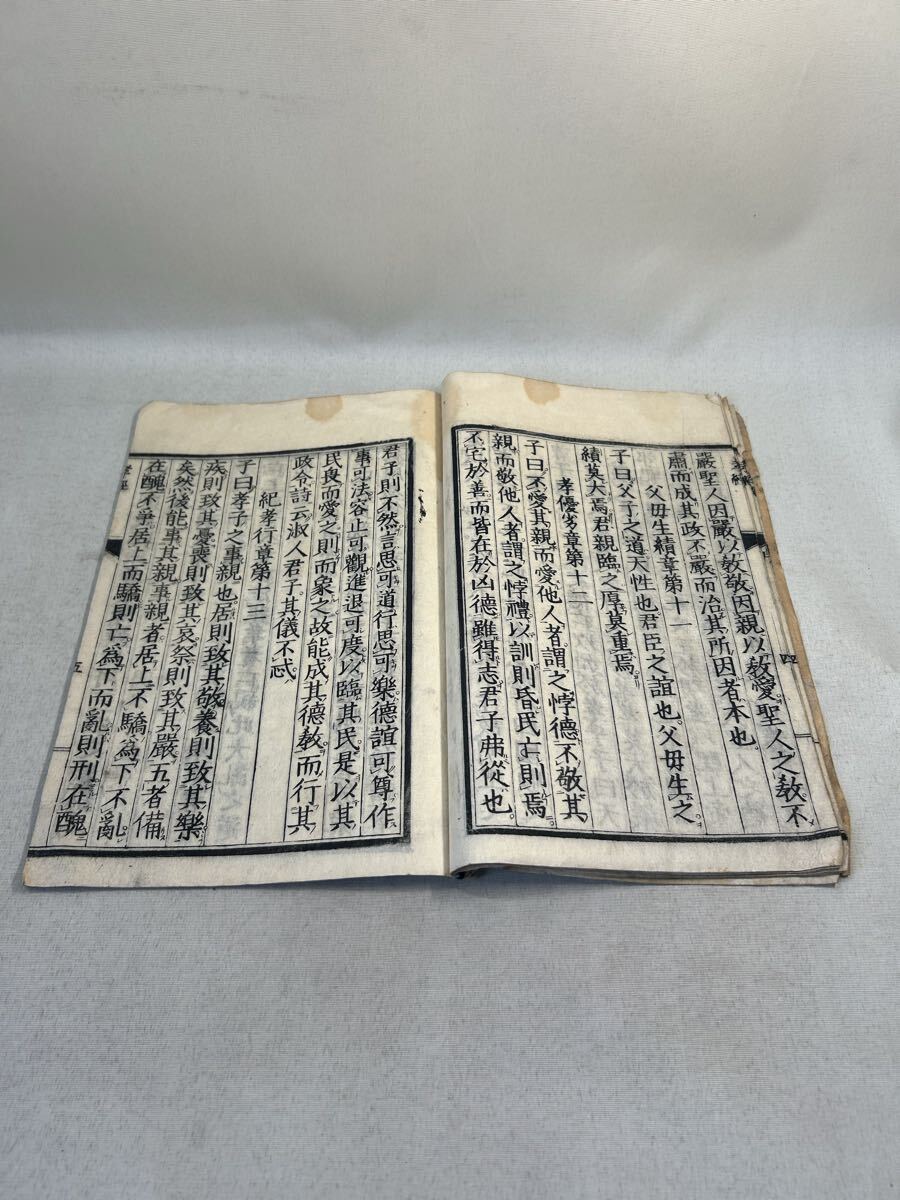 嚴聖人因嚴以敎敬因親以敎愛聖人之敎不
肅而成其政不嚴而治其所因者本也
父毋生績章第十一
子曰父子之道天性也君臣之誼也父毋生之
績莫大焉君親臨之厚莫重焉
孝優劣章第十二
子曰不愛其親而愛他人者謂之悖德不敬其
親而敬他人者謂之悖禮以訓則昏民亡則焉
不宅於善而皆在於凶德雖得志君子弗從也
四
君子則不然言思可道行思可樂德誼可尊作
事可法容止可觀進退可度以臨其民是以其
民畏而愛之則而象之故能成其德敎而行其
政令詩云淑人君子其儀不忒
紀孝行章第十三
子曰孝子之事親也居則致其敬養則致其樂
疾則致其憂喪則致其哀祭則致其嚴五者備
矣然後能事其親事親者居上不驕爲下不亂
在醜不爭居上而驕則亡爲下而亂則刑在醜
五